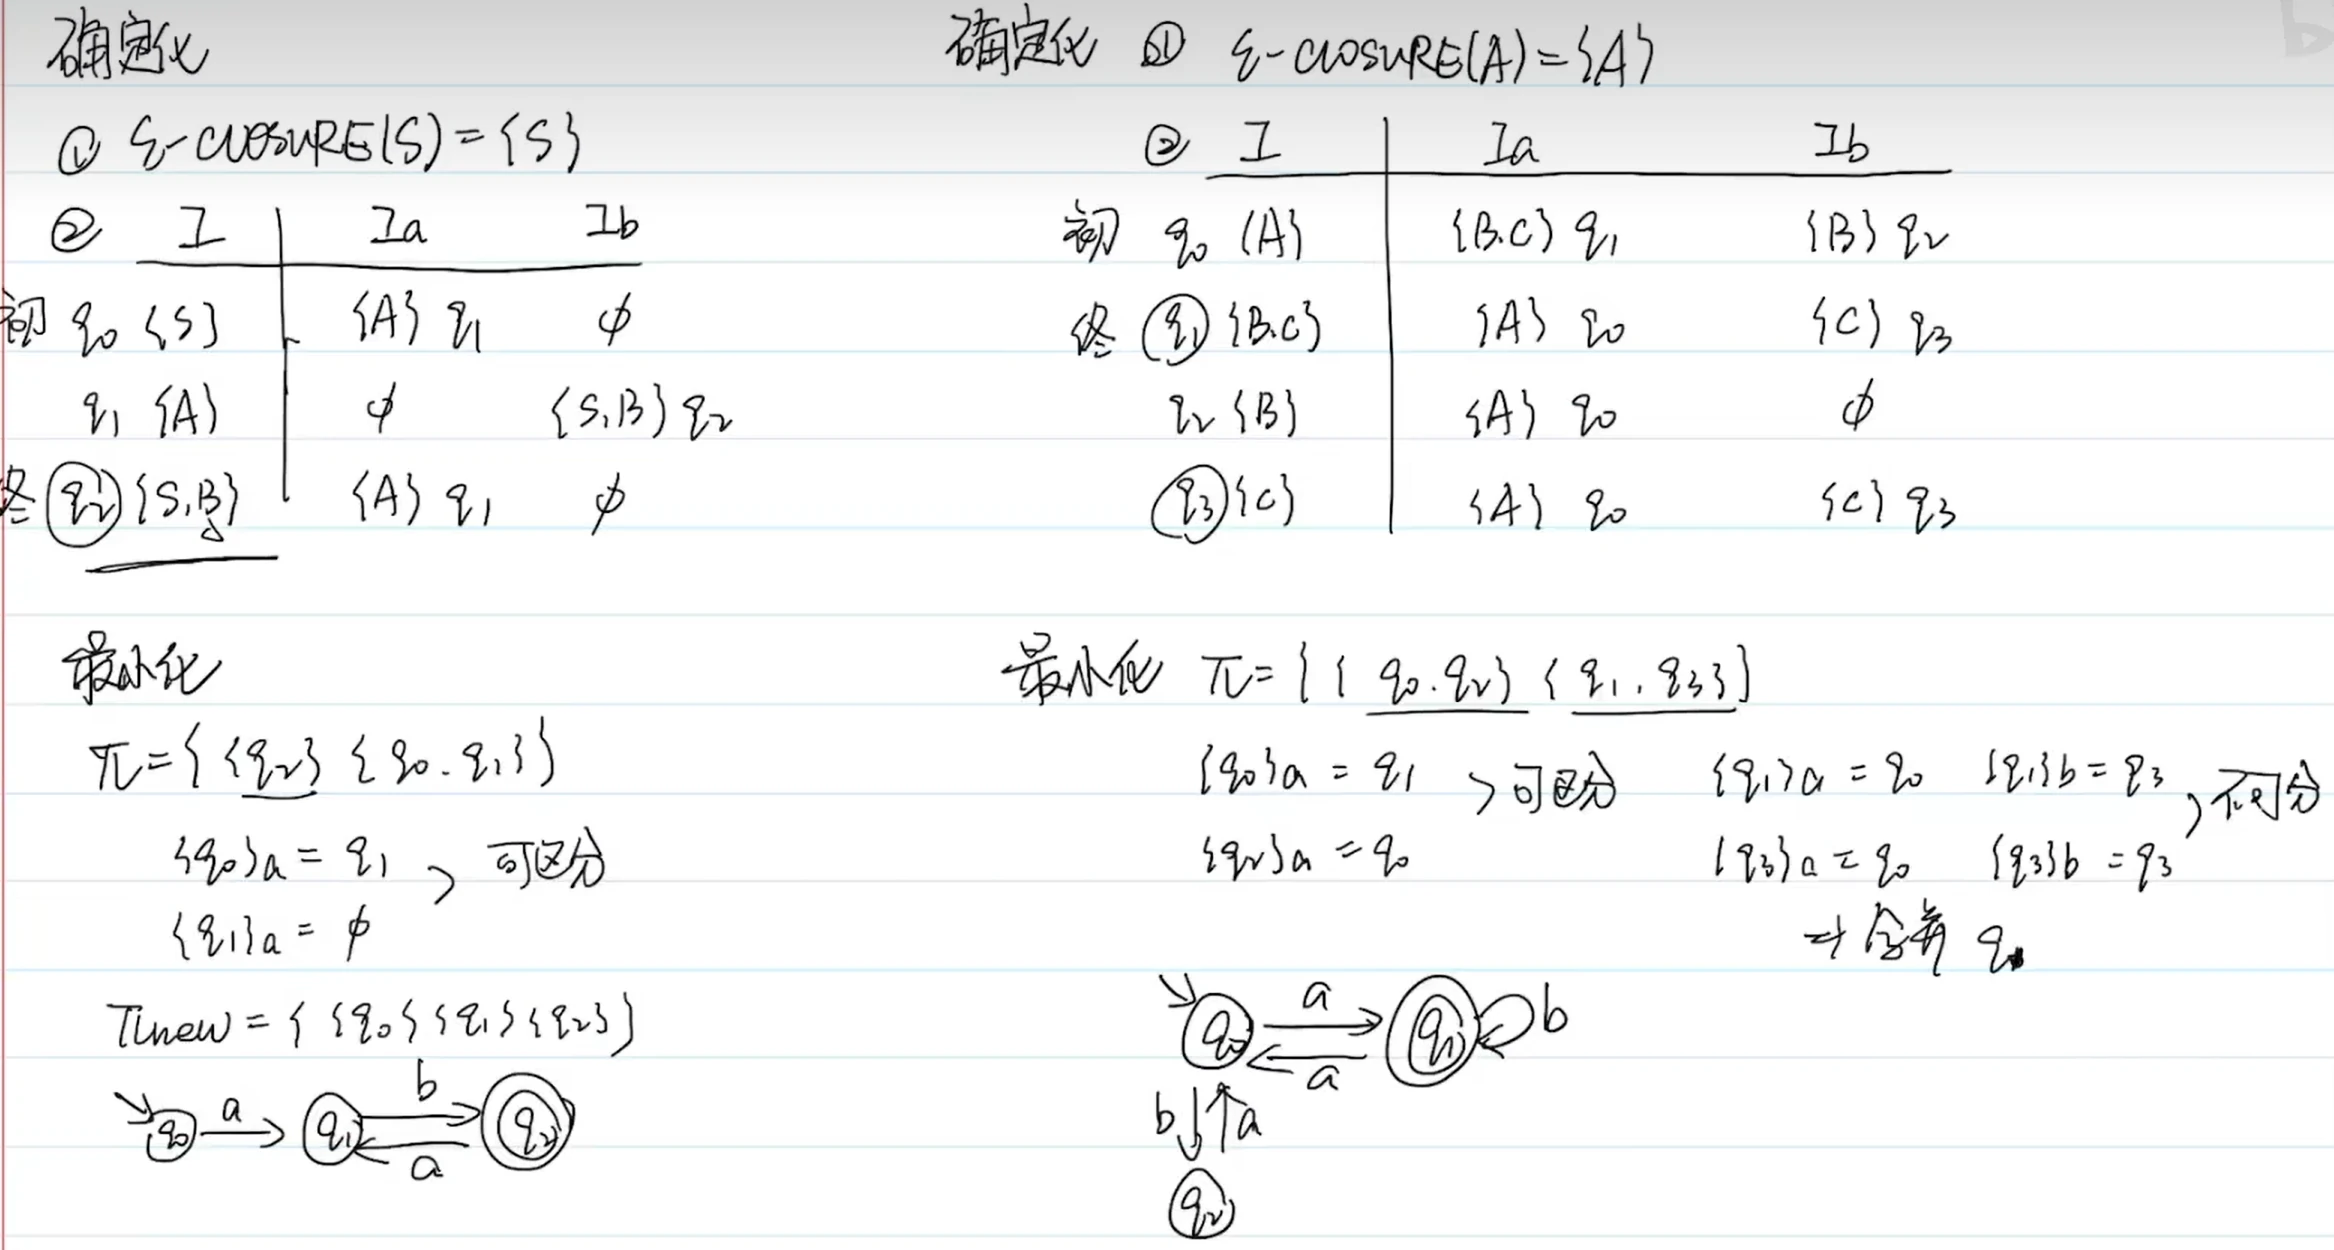 确定化
① ε-CLOSURE(S)={S}
② I Ia Ib
初 q0 {S} {A} q1 φ
q1 {A} φ {S,B} q2
终 q2 {S,B} {A} q1 φ
最小化
π={ {q2} {q0.q1} }
{q0}a = q1 , 可区分
{q1}a = φ
πnew = { {q0} {q1} {q2} }
q0 a q1 b a q2
确定化 ① ε-CLOSURE(A)={A}
② I Ia Ib
初 q0 {A} {B.C} q1 {B} q2
终 q1 {B.C} {A} q0 {C} q3
q2 {B} {A} q0 φ
q3 {C} {A} q0 {C} q3
最小化 π={ { q0.q2} { q1, q3} }
{q0}a = q1 > 可区分 {q1}a = q0 {q1}b = q3 , 不可分
{q2}a = q0 {q3}a = q0 {q3}b = q3
⇒ 合并 q
q0 a a q1 b
b a
q2